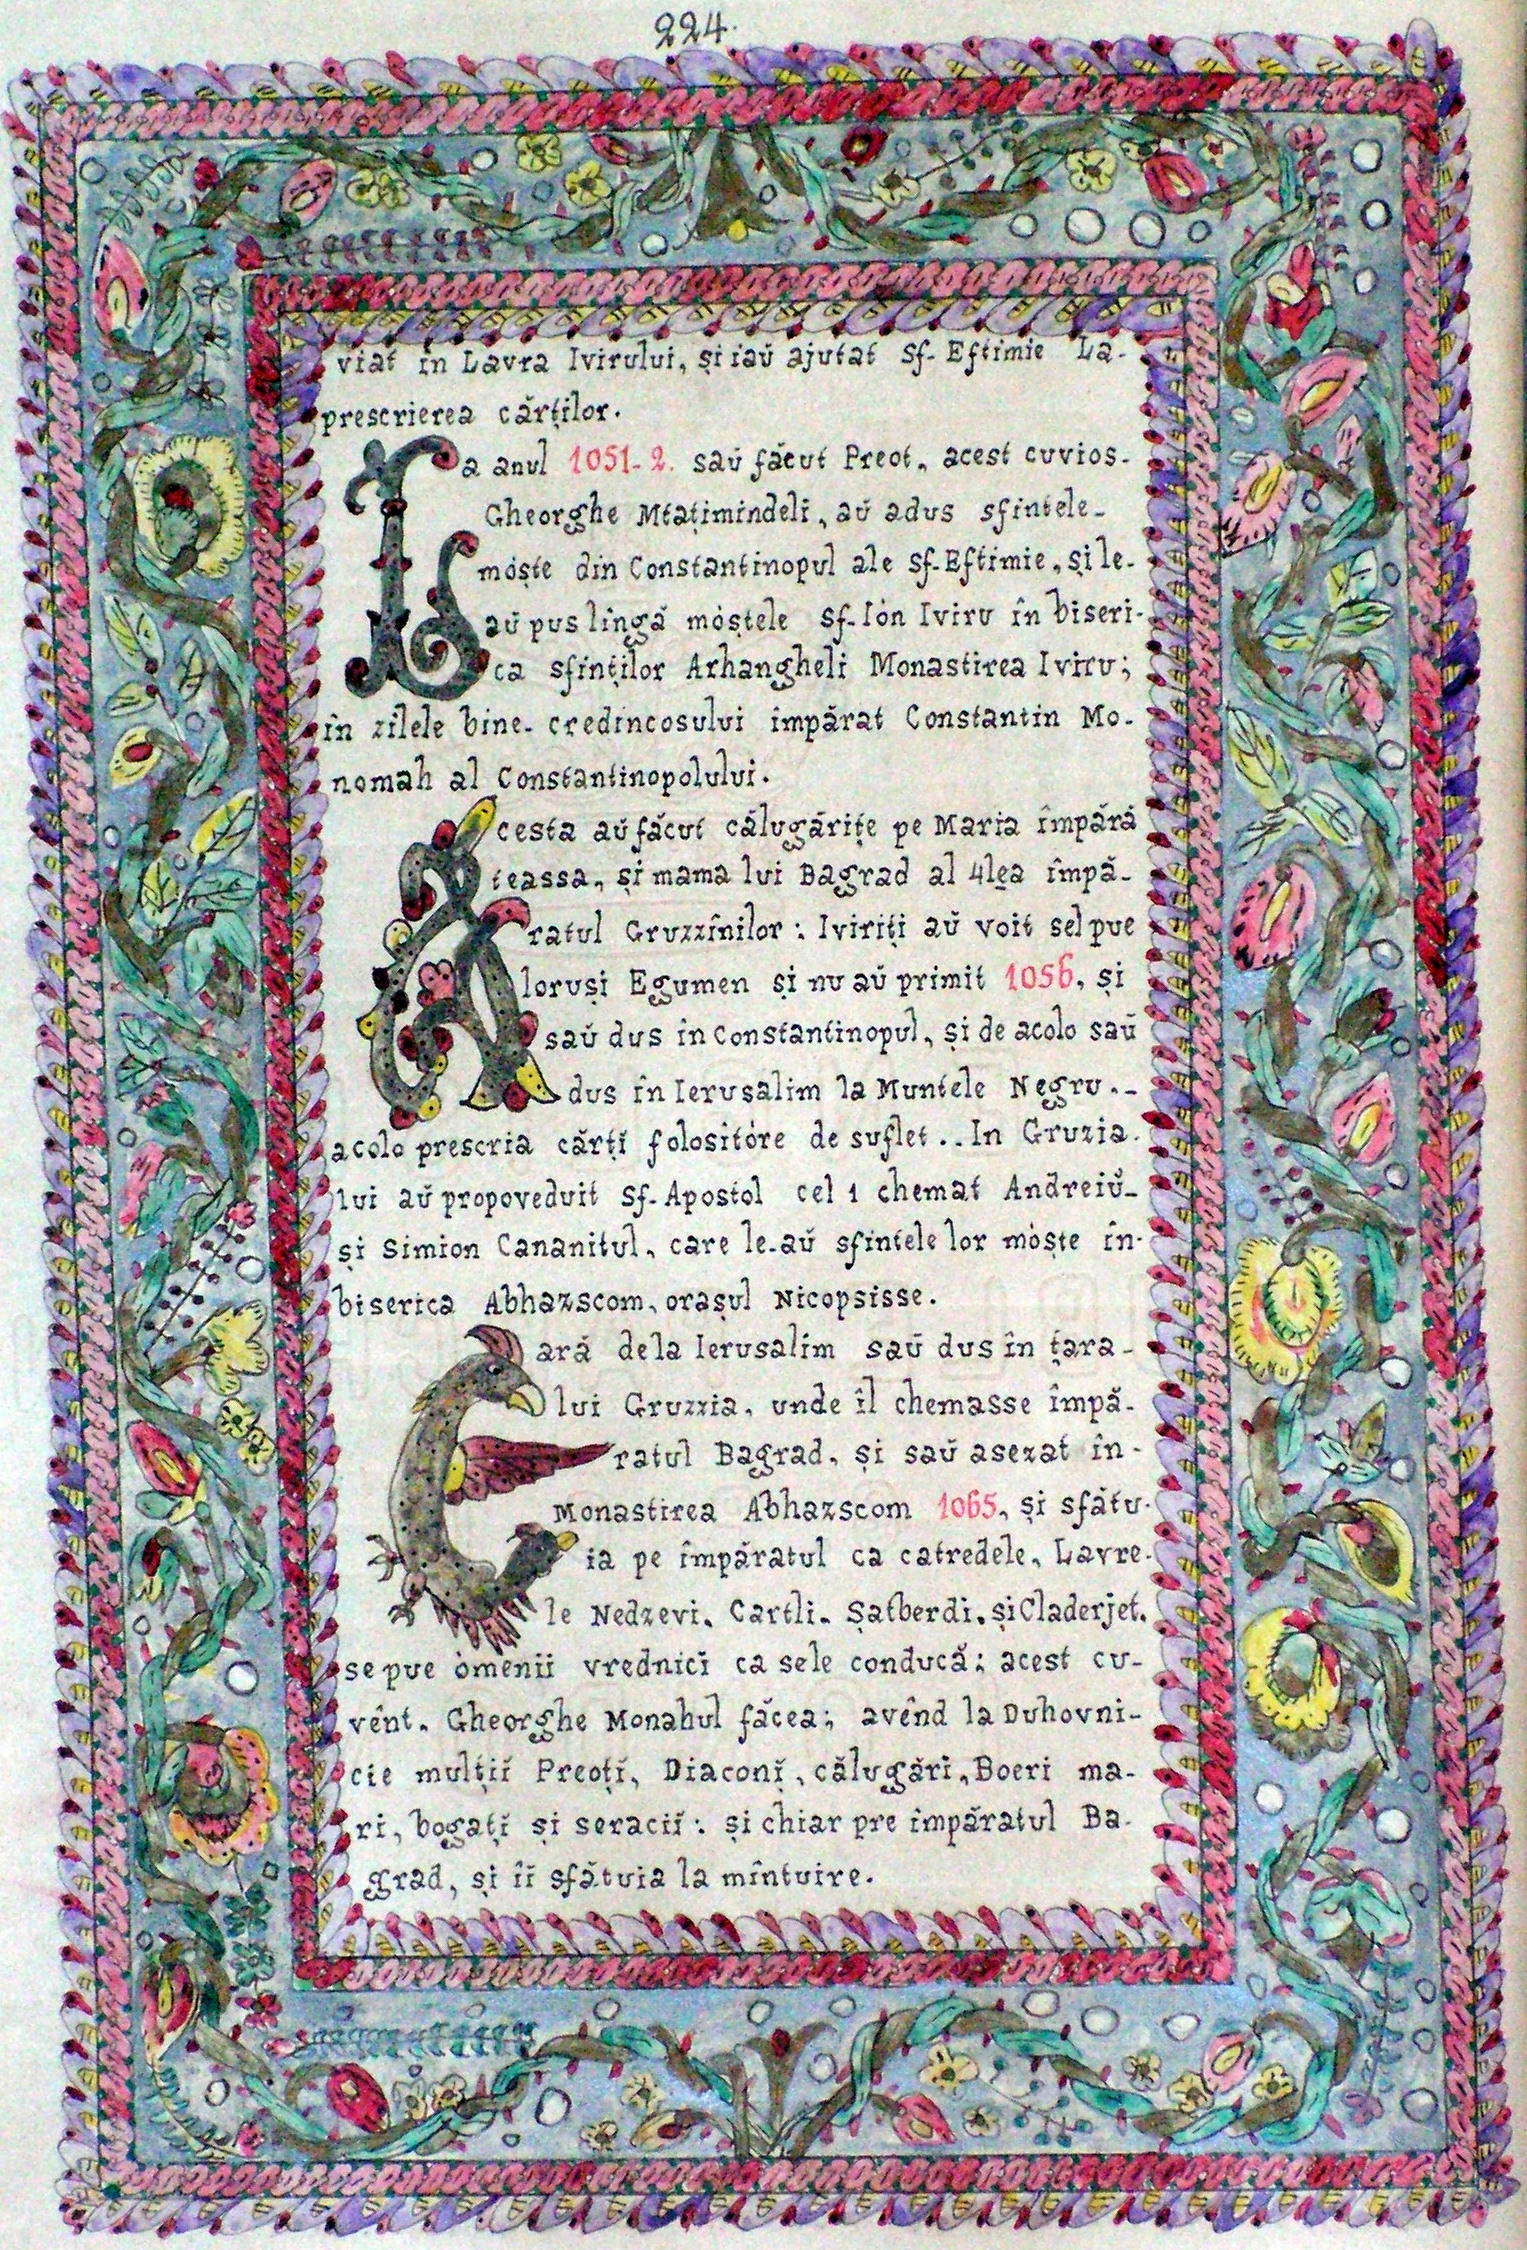 224.
viat în Lavra Ivirului, și iaŭ ajutat Sf- Eftimie La-
prescrierea cărților.
La anul 1051-2. saŭ făcut Preot, acest cuvios-
Gheorghe Mtațimindeli, aŭ adus sfintele-
móște din Constantinopul ale Sf-Eftimie, și le-
aŭ pus lîngă móștele Sf-Ión Iviru în biseri-
ca sfinților Arhangheli Monastirea Iviru;
în zilele bine-credincosului împărat Constantin Mo-
nomah al Constantinopolului.
Acesta aŭ făcut călugărițe pe Maria împără
teassa, și mama lui Bagrad al 4lea împă-
ratul Gruzzînilor: Iviriți aŭ voit sel pue
loruși Egumen și nu aŭ primit 1056, și
saŭ dus în Constantinopul, și de acolo saŭ
dus în Ierusalim la Muntele Negru.-
acolo prescria cărțĭ folositóre de suflet.. In Gruzia.
lui aŭ propoveduit Sf-Apostol cel 1 chemat Andreiŭ-
și Simion Cananitul, care le-aŭ sfintele lor móște în-
biserica Abhazscom, orașul Nicopsisse.
Eară dela Ierusalim saŭ dus în țara-
lui Gruzzia, unde îl chemasse împă-
ratul Bagrad, și saŭ asezat în-
Monastirea Abhazscom 1065, și sfătu-
ia pe împăratul ca catredele, Lavre-
le Nedzevi. Cartli. Șatberdi. și Claderjet.
se pue ómenii vrednicĭ ca sele conducă; acest cu-
vênt. Gheorghe Monahul făcea; avênd la Duhovni-
cie mulțiĭ Preoțĭ, Diaconĭ, călugări, Boeri ma-
ri, bogațĭ și seraciĭ: și chiar pre împăratul Ba-
grad, și îĭ sfătuia la mîntuire.